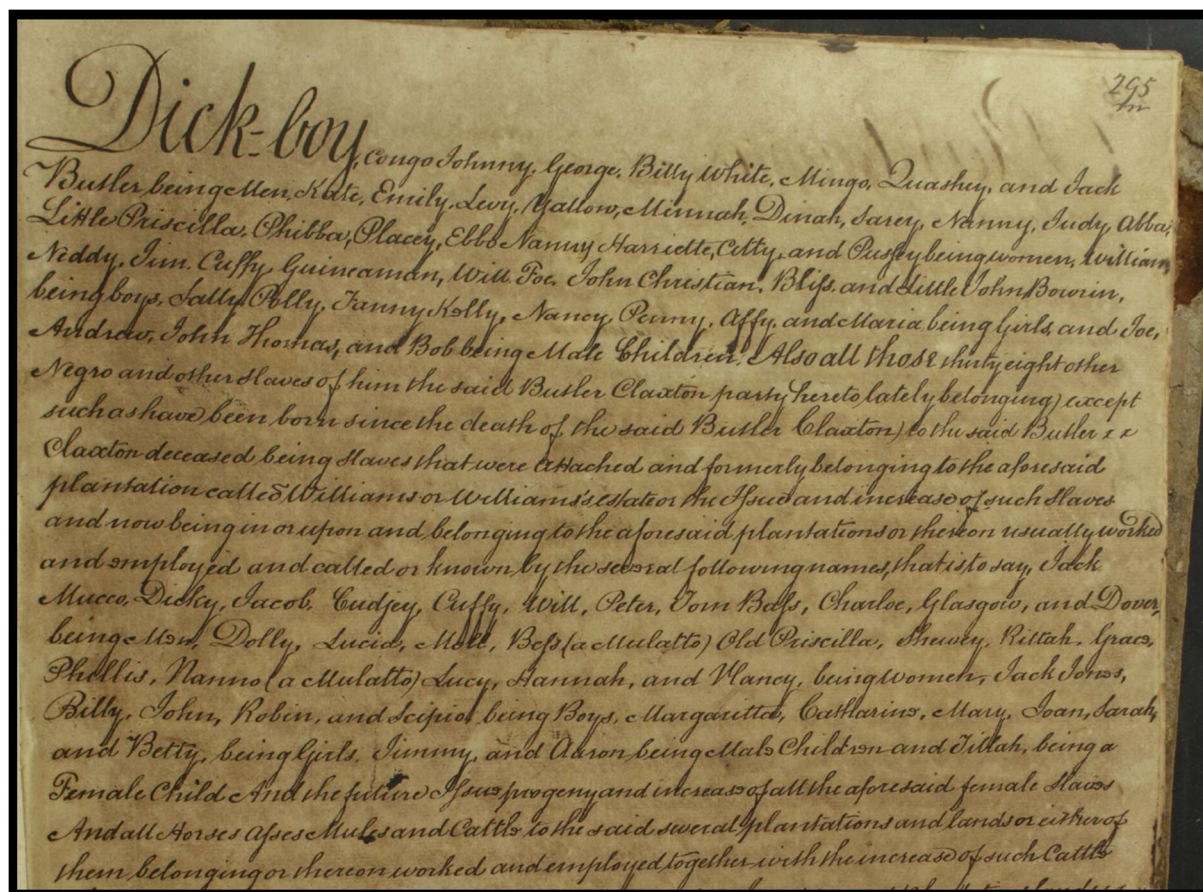 295
Dick-boy, Congo Johnny, George, Billy White, Mingo, Quashey, and Jack
Butler being Men, Kate, Emily, Levy, Yallow, Minnah, Dinah, Sarey, Nanny, Judy, Abba,
Little Priscilla, Phibba, Placey, Ebbo Nanny, Harriette, Citty, and Pussey being women, William,
Neddy, Jim, Cuffy, Guineaman, Will. Foe, John Christian, Bliss, and Little John Bowrin,
being boys, Sally Polly, Fanny Kelly, Nancy, Penny, Affy, and Maria being Girls, and Joe,
Andrew, John Thomas, and Bob being Male Children. Also all those thirty eight other
Negro and other Slaves of him the said Butler Claxton party hereto lately belonging (except
such as have been born since the death of the said Butler Claxton) to the said Butler x x
Claxton deceased being Slaves that were attached and formerly belonging to the aforesaid
plantation called Williams or Williams's estate or the Issue and increase of such Slaves
and now being in or upon and belonging to the aforesaid plantations or thereon usually worked
and employed and called or known by the several following names, that is to say, Jack
Mucco, Dicky, Jacob, Cudjey, Cuffy, Will, Peter, Tom Bass, Charloe, Glasgow, and Dover,
being Men, Dolly, Lucia, Moll, Bess (a Mulatto) Old Priscilla, Shewey, Kittah, Grace,
Phillis, Nanno (a Mulatto) Lucy, Hannah, and Nancy, being women, Jack Jones,
Billy, John, Robin, and Scipio, being Boys, Margaritta, Catharine, Mary, Joan, Sarah,
and Betty, being Girls, Jimmy, and Aaron being Male Children and Tillah, being a
Female Child And the future Issue progeny and increase of all the aforesaid female Slaves
And all Horses Asses Mules and Cattle to the said several plantations and lands or either of
them belonging or thereon worked and employed together with the increase of such Cattle